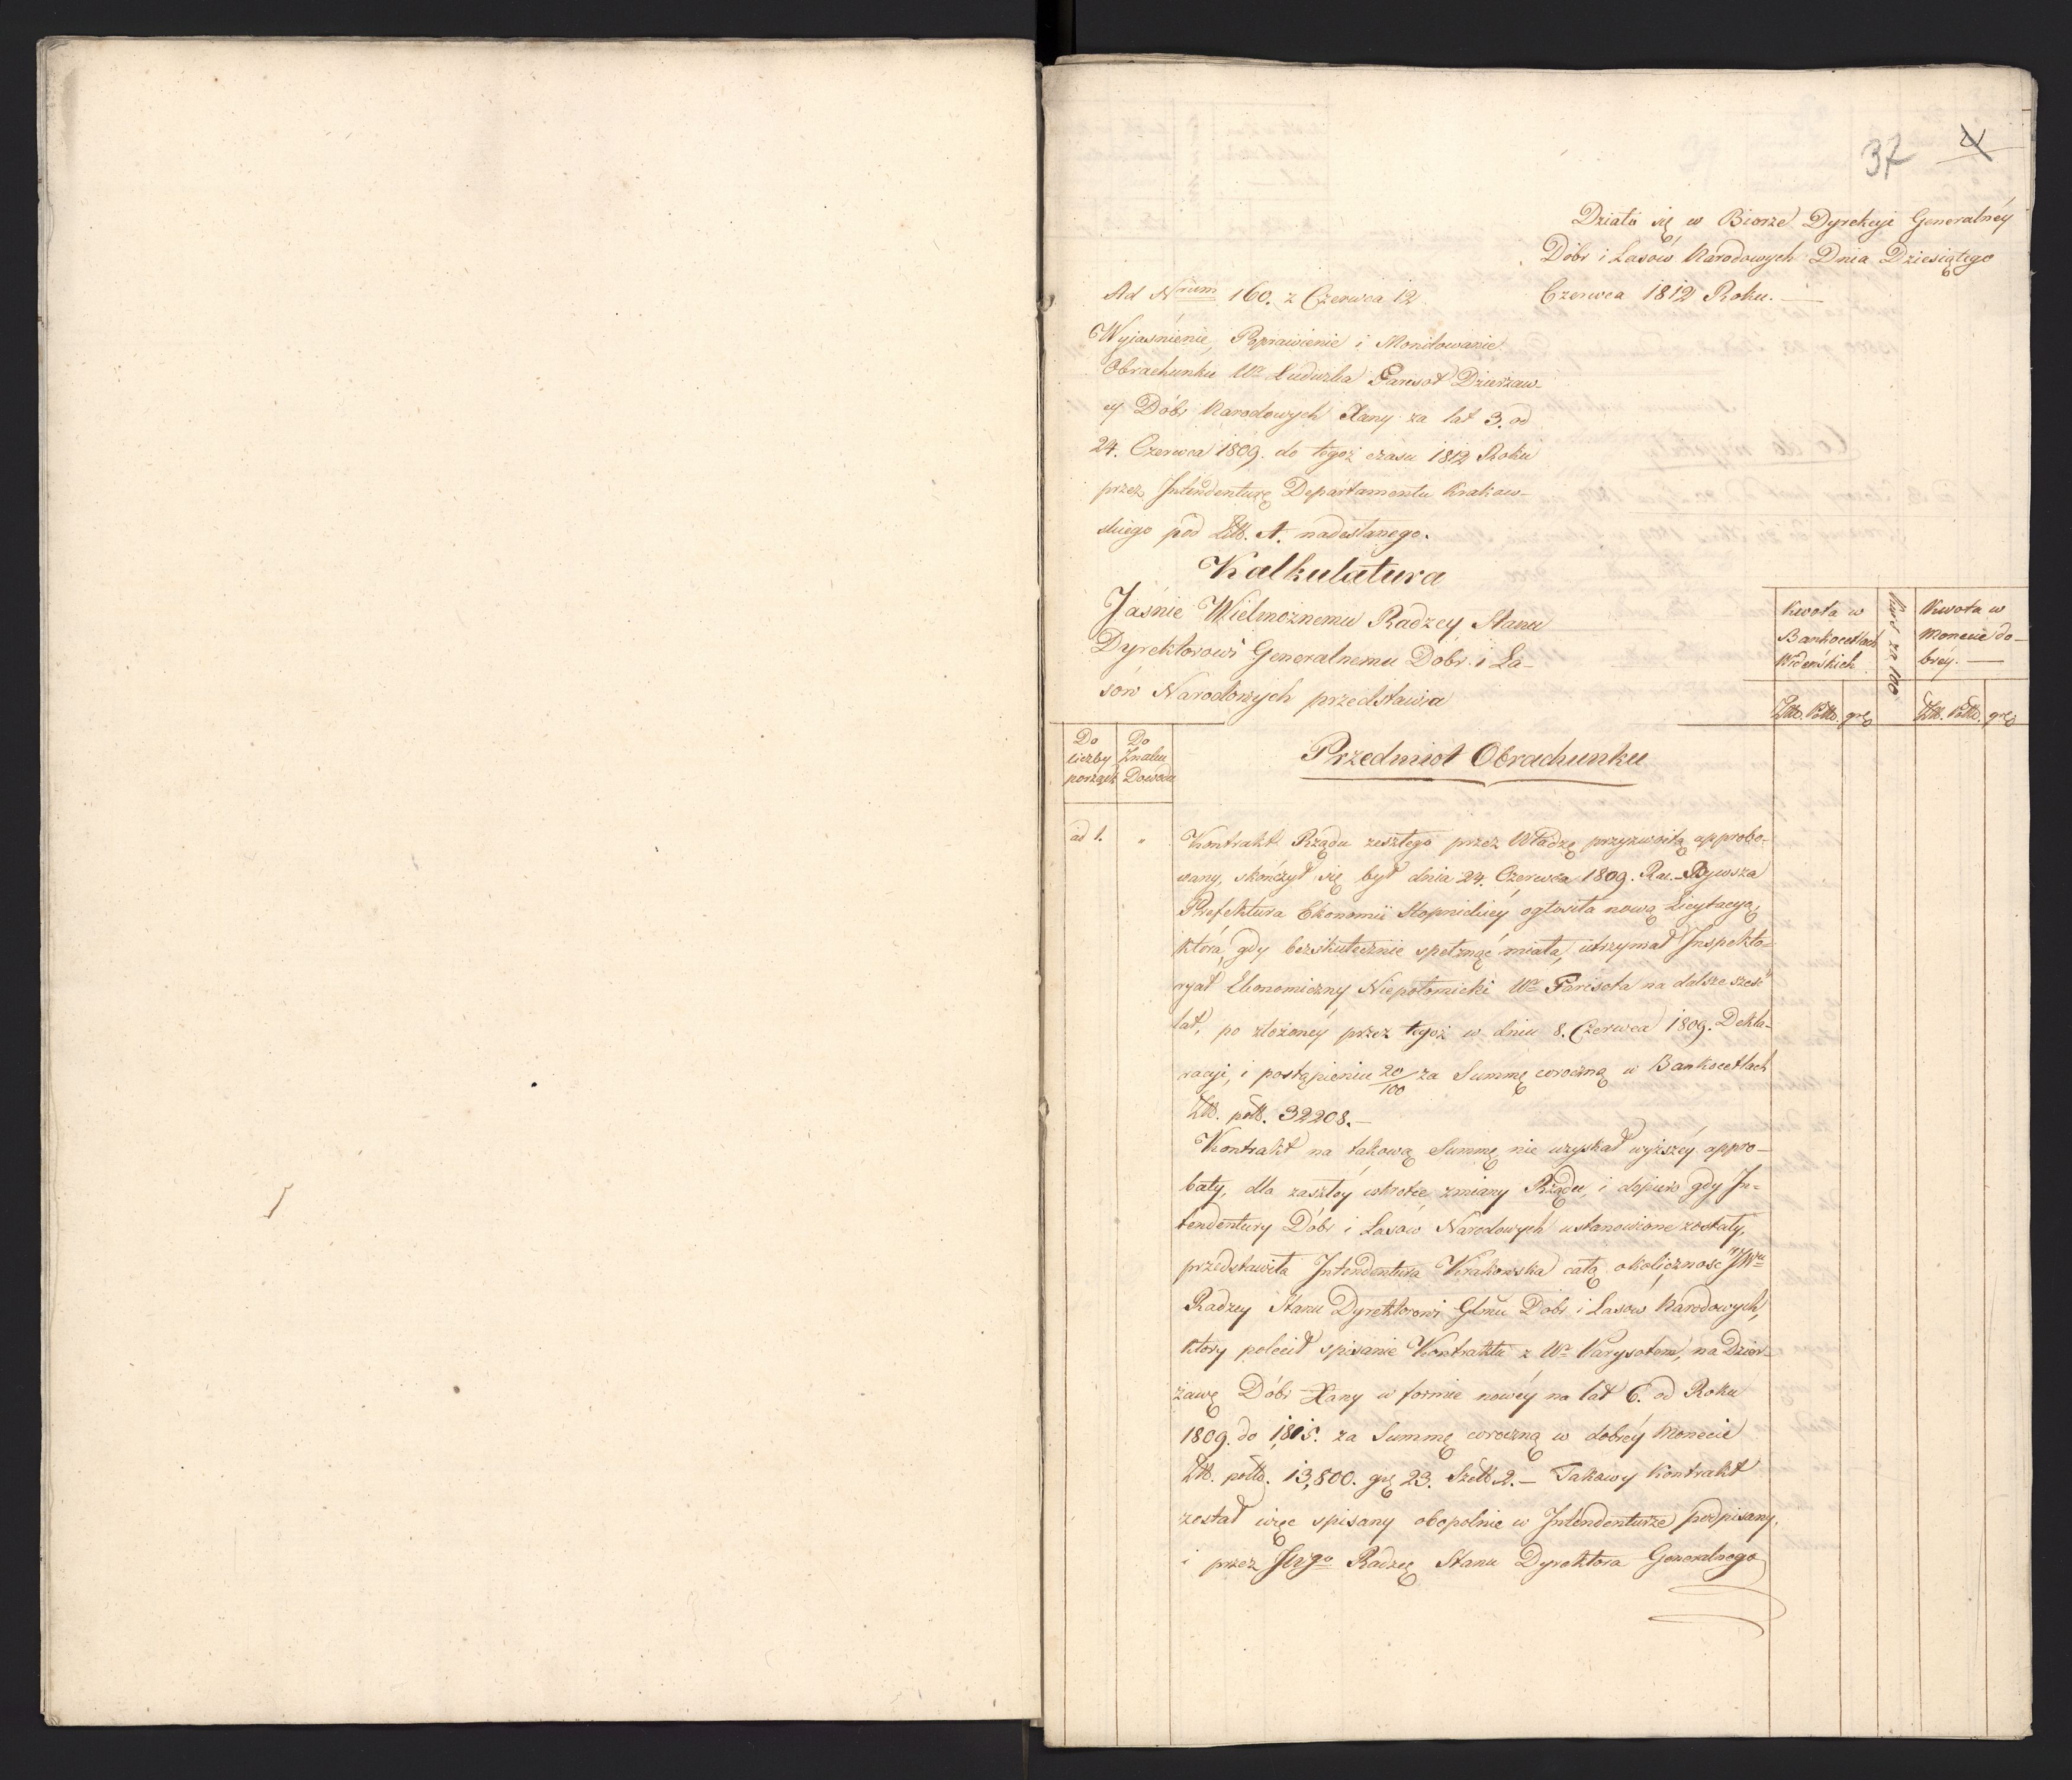 37 4
Działo się w Biorze Dyrekcyi Generalnéy
Dóbr i Lasów Narodowych Dnia Dziesiątego
Czerwca 1812 Roku. —
Ad Nrum 160. z Czerwca 12
Wyjaśnienie, Poprawienie i Monitowanie
Obrachunku Wo Ludwika Parisot Dzierżaw-
cy Dóbr Narodowych Xany za lat 3. od
24. Czerwca 1809. do tegoż czasu 1812 Roku
przez Intendenturę Departamentu Krakow-
skiego pod Litt. A. nadesłanego.
Kalkulatura
Jaśnie Wielmożnemu Radzcy Stanu
Dyrektorowi Generalnemu Dóbr i La-
sów Narodowych przedstawia
Kwota w
Bankocetlach
Widenskich
Kurs za 100
Kwota w
Monecie do-
bréy. —
Złł. Polł. grę
Złł. Polł. grę
Do
liczby
porząd:
Do
Znaku
Dowodu
Przedmiot Obrachunku
ad 1. "
Kontrakt Rządu zeszłego przez Władzę przyzwoitą approbo-
wany, skończył się był dnia 24. Czerwca 1809. Ra. - Bywsza
Prefektura Ekonomii Stopnickiéy ogłosiła nową Licytacyą,
która, gdy bezskutecznie spełznąć miała, utrzymał Inspekto-
ryat Ekonomiczny Niepołomicki Wo Parisota na dalsze sześć
lat, po złożonéy przez tegoż w dniu 8. Czerwca 1809. Dekla-
racyi, i postąpieniu 20/100 za Summę coroczną w Bankocetlach
Złł. polł. 32208. —
Kontrakt na takową Summę nie uzyskał wyższéy appro-
baty, dla zaszłéy wkrotce zmiany Rządu, i dopiero gdy In-
tendentury Dóbr i Lasów Narodowych ustanowione zostały,
przedstawiła Intendentura Krakowska całą okoliczność JWu
Radzcy Stanu Dyrektorowi Glmu Dóbr i Lasów Narodowych,
który polecił spisanie Kontraktu z Wo Parysotem, na Dzier-
żawę Dóbr Xany w formie nowéy na lat 6. od Roku
1809. do 1815. za Summę coroczną w dobréy Monecie
Złł. polł. 13,800. grę 23. Szelł 2. — Takowy Kontrakt
został więc spisany obopolnie w Intendenturze podpisany,
i przez JWgo Radzcę Stanu Dyrektora Generalnego